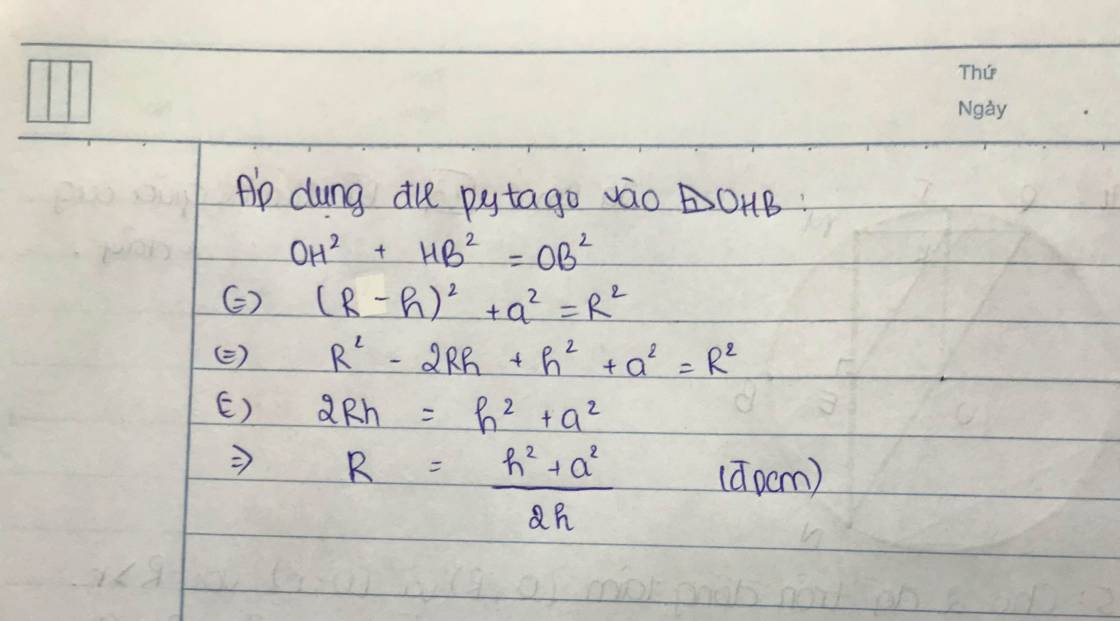 Thứ
Ngày
Áp dụng đlí pytago vào ⊿OHB:
OH² + HB² = OB²
(=) (R - h)² + a² = R²
(=) R² - 2Rh + h² + a² = R²
(=) 2Rh = h² + a²
=> R = (h² + a²)/2h (đpcm)